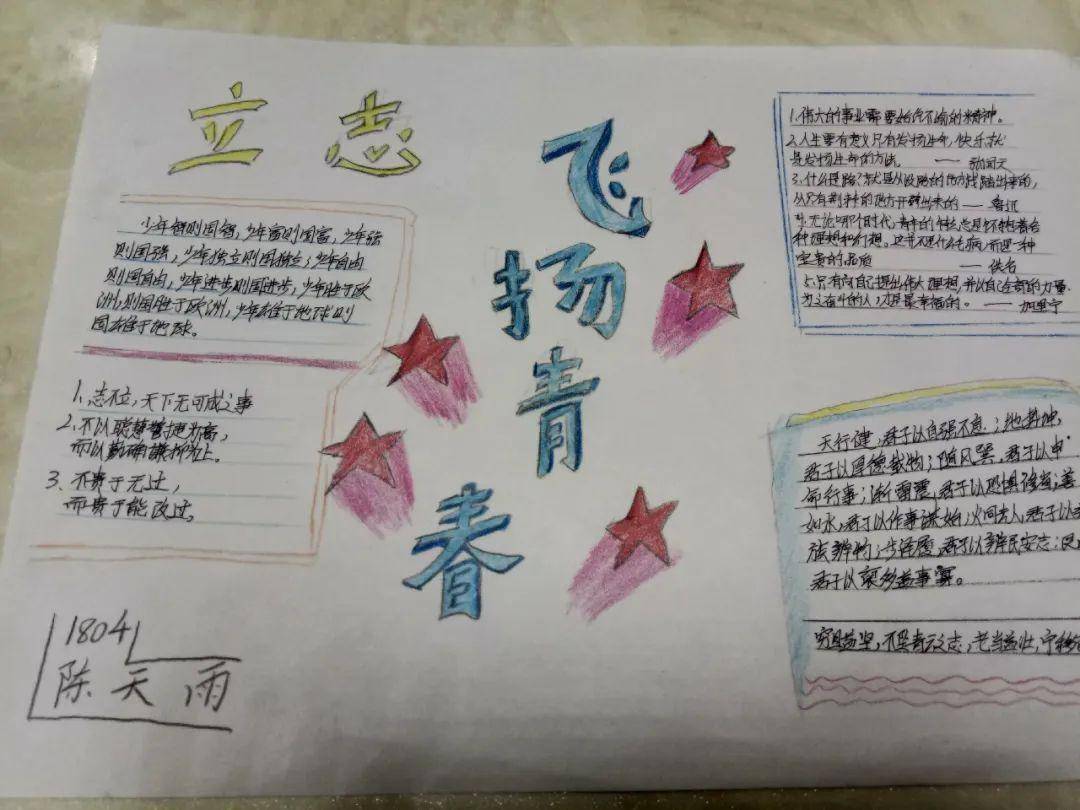 立志
飞扬青春
少年智则国智,少年富则国富,少年强
则国强,少年独立则国独立,少年自由
则国自由,少年进步则国进步,少年胜于欧
洲,则国胜于欧洲,少年雄于地球则
国雄于地球。
1、志不立,天下无可成之事
2、不以聪慧警捷为高,
而以勤确谦抑为上。
3、不贵于无过,
而贵于能改过。
1804
陈天雨
1.伟大的事业需要始终不渝的精神。
2.人生要有意义只有发扬生命,快乐就
是发扬生命的方法。 ——张闻天
3.什么是路?就是从没路的地方践踏出来的,
从只有荆棘的地方开辟出来的——鲁迅
4.无论哪个时代,青年的特点总是怀抱着各
种理想和幻想,这并不是什么毛病,而是一种
宝贵的品质 ——佚名
5.只有向自己提出伟大理想,并以自己全部的力量
为之奋斗的人,才是最幸福的。——加里宁
天行健,君子以自强不息;地势坤,
君子以厚德载物;随风巽,君子以申
命行事;洊雷震,君子以恐惧修省;
如水,君子以作事谋始;火同人,君子以
族辨物;步泽履,君子以辨民安志;风
君子以裒多益事寡。
穷且益坚,不坠青云之志,老当益壮,宁移